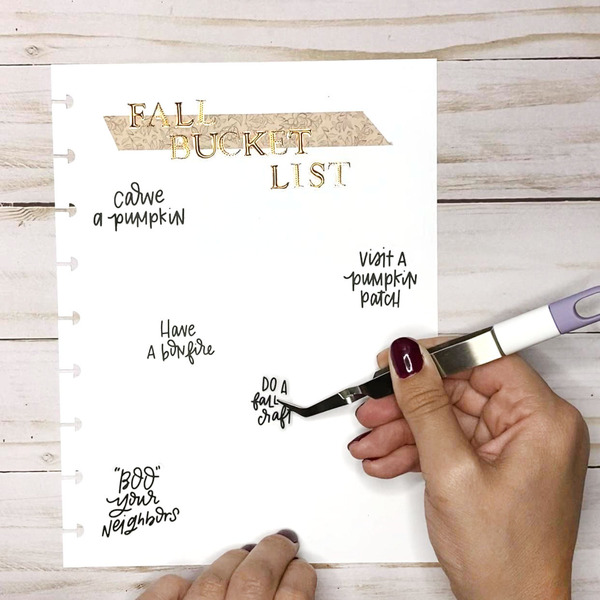 FALL
BUCKET
LIST
Carve
a pumpkin
Visit A
pumpkin
patch
Have
A bonfire
DO A
fall
craft
"BOO"
your
neighbors